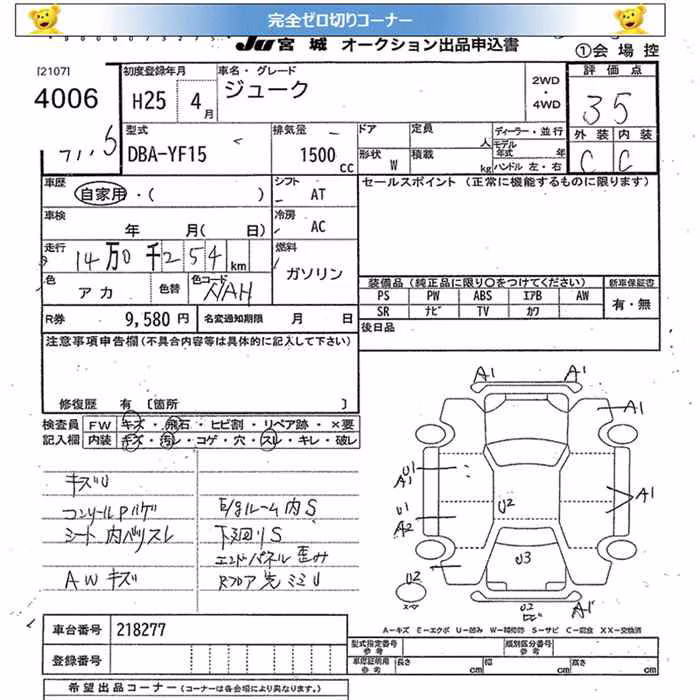 完全ゼロ切りコーナー
Ju 宮 城 オークション出品申込書
①会 場 控
[2107]
4006
初度登録年月
H25 4月
車名・グレード
ジューク
2WD
・
4WD
評 価 点
3 5
外 装 内 装
C C
型式
DBA-YF15
排気量
1500 cc
ドア
定員
人
形状
W
積載
kg
ディーラー・並行
モデル年式 年
ハンドル 左・右
車歴
自家用・( )
シフト
AT
セールスポイント (正常に機能するものに限ります)
車検
年 月( 日)
冷房
AC
走行
14万0千254km
燃料
ガソリン
色
アカ
色替
色コード
NAH
装備品 (純正品に限り○をつけてください)
新車保証書
PS PW ABS エアB AW
SR ナビ TV カワ
有・無
R券
9,580円
名変通知期限 月 日
後日品
注意事項申告欄 (不具合内容等は具体的に記入して下さい)
修復歴 有 〔箇所 〕
検査員
記入欄
FW キズ・飛石・ヒビ割・リペア跡・×要
内装 キズ・汚レ・コゲ・穴・スレ・キレ・破レ
キズU
コンソールPハゲ
シート内ベリスレ
AWキズ
E/gルーム内S
下廻りS
エンドパネル歪み
Rフロア先ミミU
A1 A1
A1
U1
A1
U1
A2
A1
U2
U3
U2
U2
A1
A-キズ E-エクボ U-凹み W-補修跡 S-サビ C-腐食 XX-交換済
車台番号
218277
登録番号
型式指定番号
参考
類別区分番号
参考
車庫証明用
参考
長さ cm
幅 cm
高さ cm
希望出品コーナー (コーナーは各会場により異なります。)